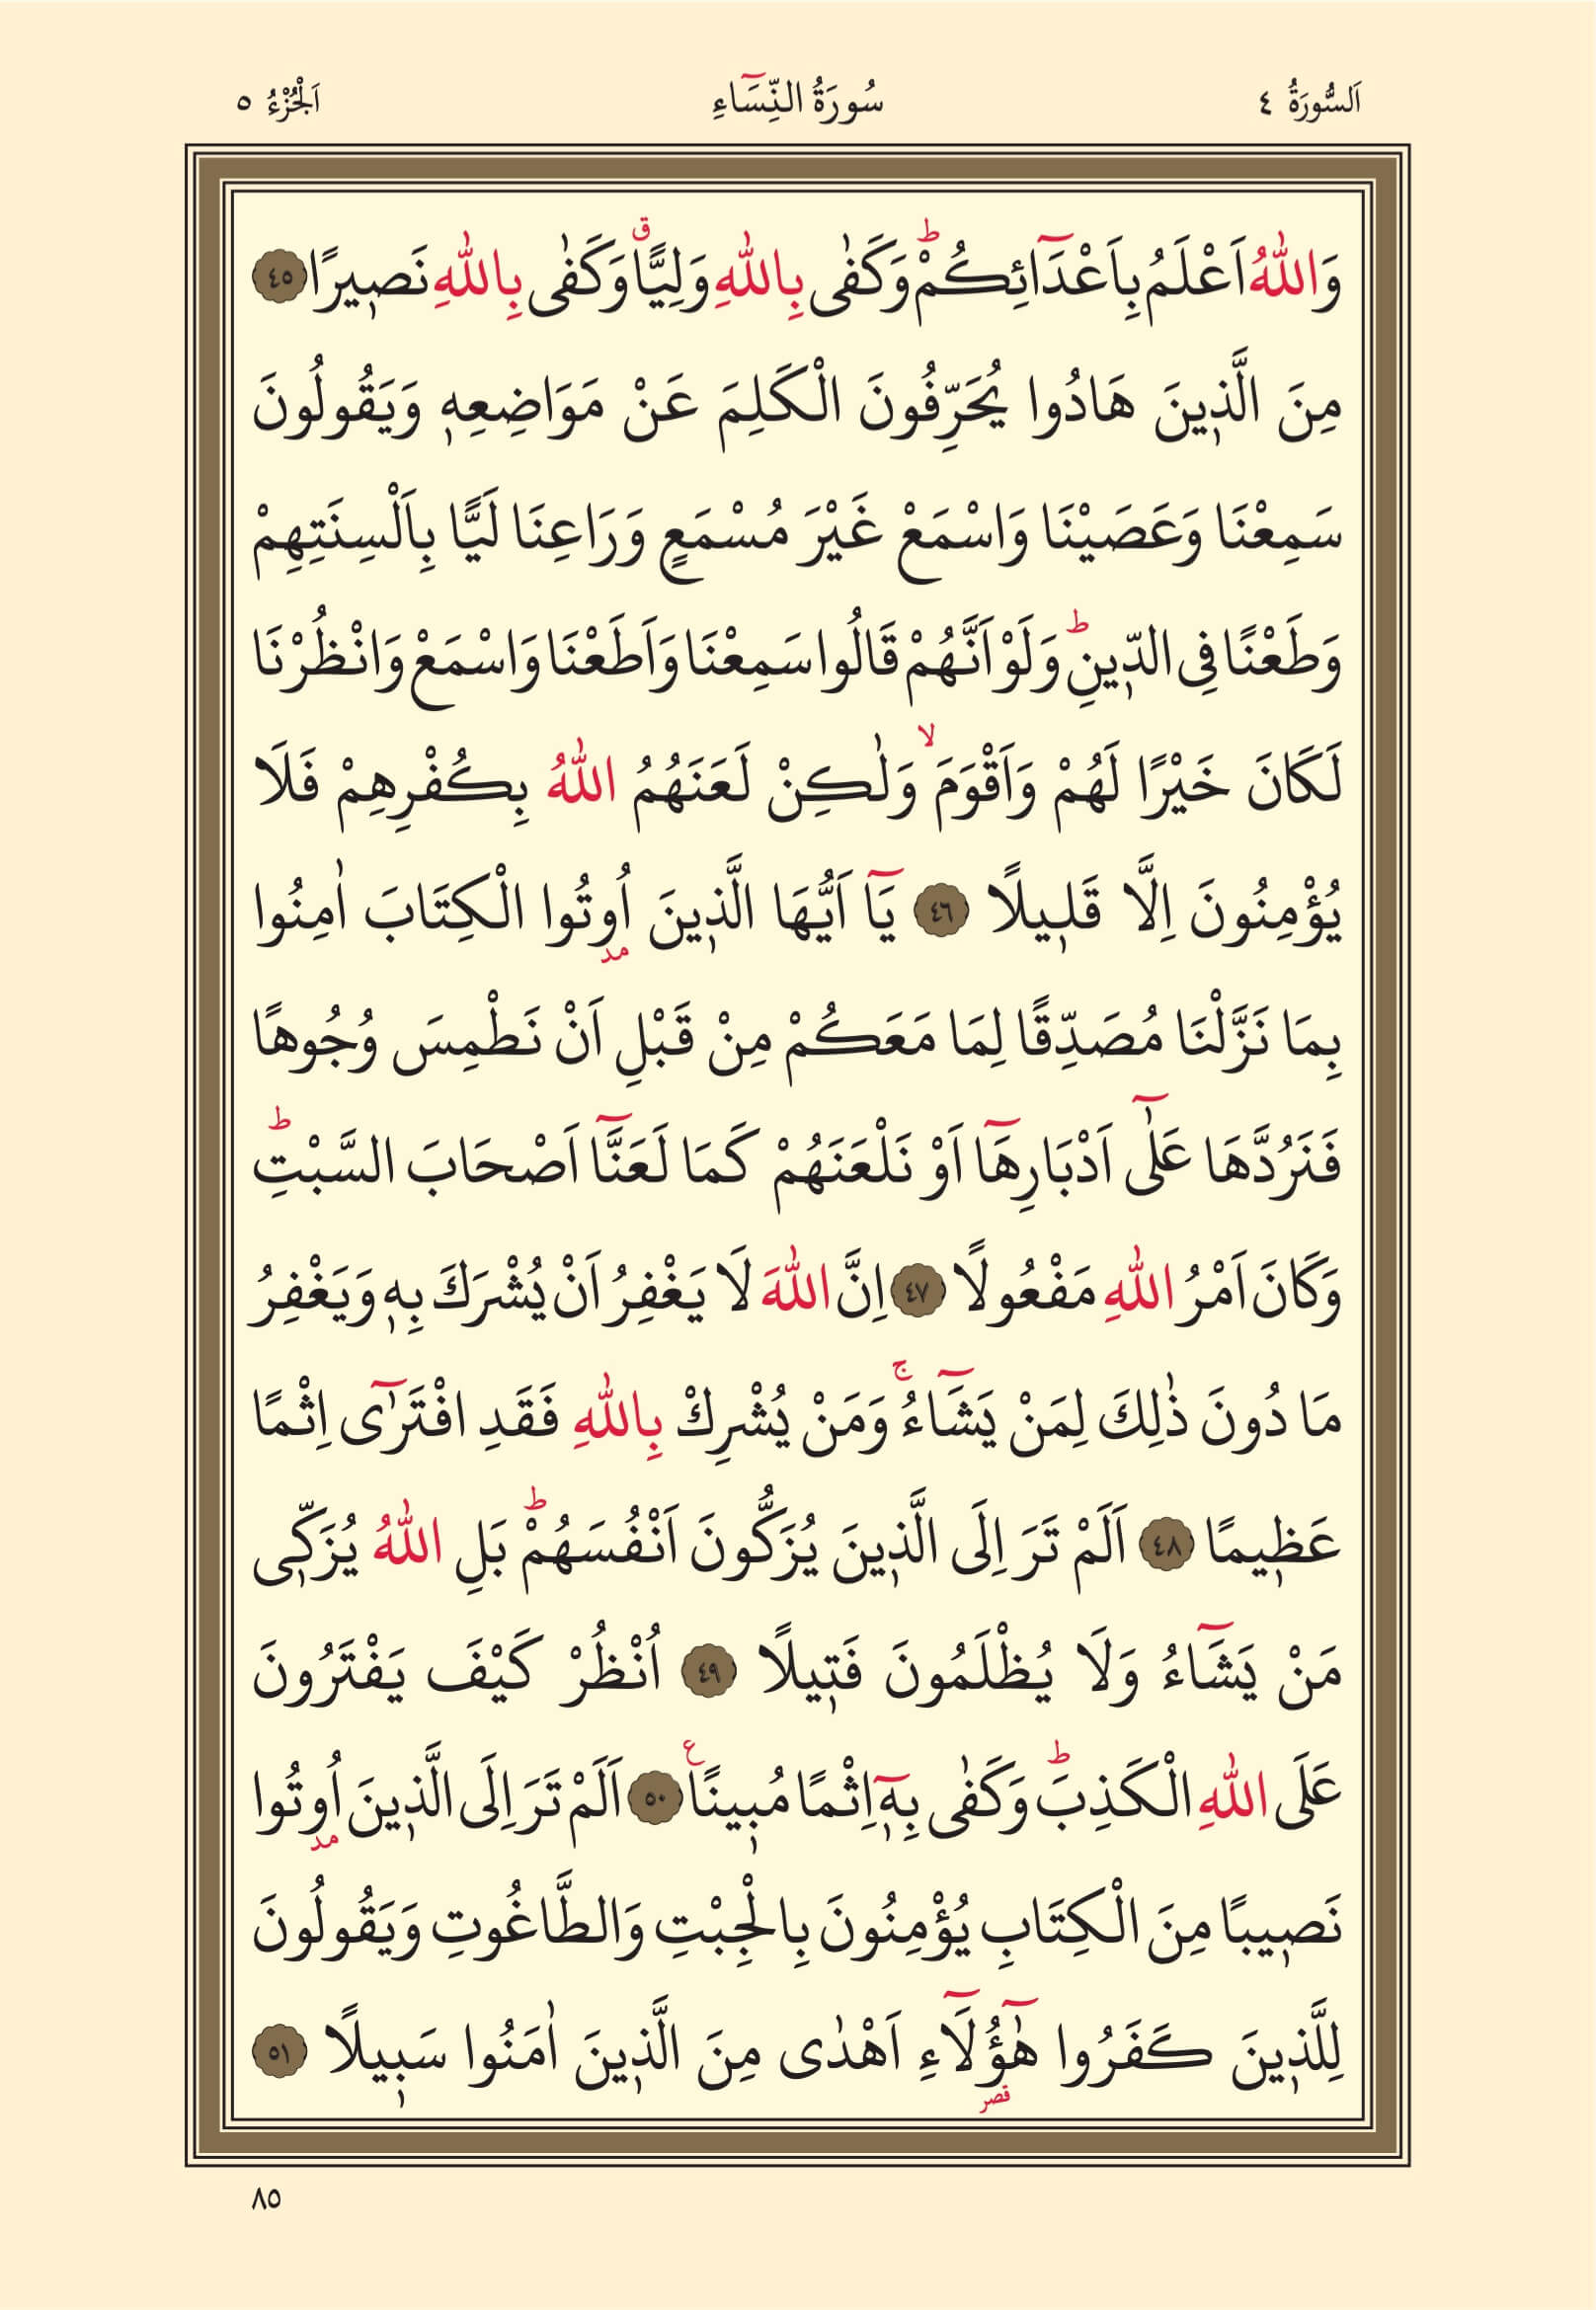 اَلسُّورَةُ ٤ سُورَةُ النِّسَٓاءِ اَلْجُزْءُ ٥
وَاللّٰهُ اَعْلَمُ بِاَعْدَٓائِكُمْۜ وَكَفٰى بِاللّٰهِ وَلِيًّاۗ وَكَفٰى بِاللّٰهِ نَصٖيرًا ٤٥
مِنَ الَّذٖينَ هَادُوا يُحَرِّفُونَ الْكَلِمَ عَنْ مَوَاضِعِهٖ وَيَقُولُونَ
سَمِعْنَا وَعَصَيْنَا وَاسْمَعْ غَيْرَ مُسْمَعٍ وَرَاعِنَا لَيًّا بِاَلْسِنَتِهِمْ
وَطَعْنًا فِى الدّٖينِۜ وَلَوْ اَنَّهُمْ قَالُوا سَمِعْنَا وَاَطَعْنَا وَاسْمَعْ وَانْظُرْنَا
لَكَانَ خَيْرًا لَهُمْ وَاَقْوَمَۙ وَلٰكِنْ لَعَنَهُمُ اللّٰهُ بِكُفْرِهِمْ فَلَا
يُؤْمِنُونَ اِلَّا قَلٖيلًا ٤٦ يَٓا اَيُّهَا الَّذٖينَ اُو۫تُوا الْكِتَابَ اٰمِنُوا
بِمَا نَزَّلْنَا مُصَدِّقًا لِمَا مَعَكُمْ مِنْ قَبْلِ اَنْ نَطْمِسَ وُجُوهًا
فَنَرُدَّهَا عَلٰٓى اَدْبَارِهَٓا اَوْ نَلْعَنَهُمْ كَمَا لَعَنَّٓا اَصْحَابَ السَّبْتِۜ
وَكَانَ اَمْرُ اللّٰهِ مَفْعُولًا ٤٧ اِنَّ اللّٰهَ لَا يَغْفِرُ اَنْ يُشْرَكَ بِهٖ وَيَغْفِرُ
مَا دُونَ ذٰلِكَ لِمَنْ يَشَٓاءُۚ وَمَنْ يُشْرِكْ بِاللّٰهِ فَقَدِ افْتَرٰٓى اِثْمًا
عَظٖيمًا ٤٨ اَلَمْ تَرَ اِلَى الَّذٖينَ يُزَكُّونَ اَنْفُسَهُمْۜ بَلِ اللّٰهُ يُزَكّٖى
مَنْ يَشَٓاءُ وَلَا يُظْلَمُونَ فَتٖيلًا ٤٩ اُنْظُرْ كَيْفَ يَفْتَرُونَ
عَلَى اللّٰهِ الْكَذِبَۜ وَكَفٰى بِهٖٓ اِثْمًا مُبٖينًا ع ٥٠ اَلَمْ تَرَ اِلَى الَّذٖينَ اُو۫تُوا
نَصٖيبًا مِنَ الْكِتَابِ يُؤْمِنُونَ بِالْجِبْتِ وَالطَّاغُوتِ وَيَقُولُونَ
لِلَّذٖينَ كَفَرُوا هٰٓؤُ۬لَٓاءِ اَهْدٰى مِنَ الَّذٖينَ اٰمَنُوا سَبٖيلًا ٥١
٨٥